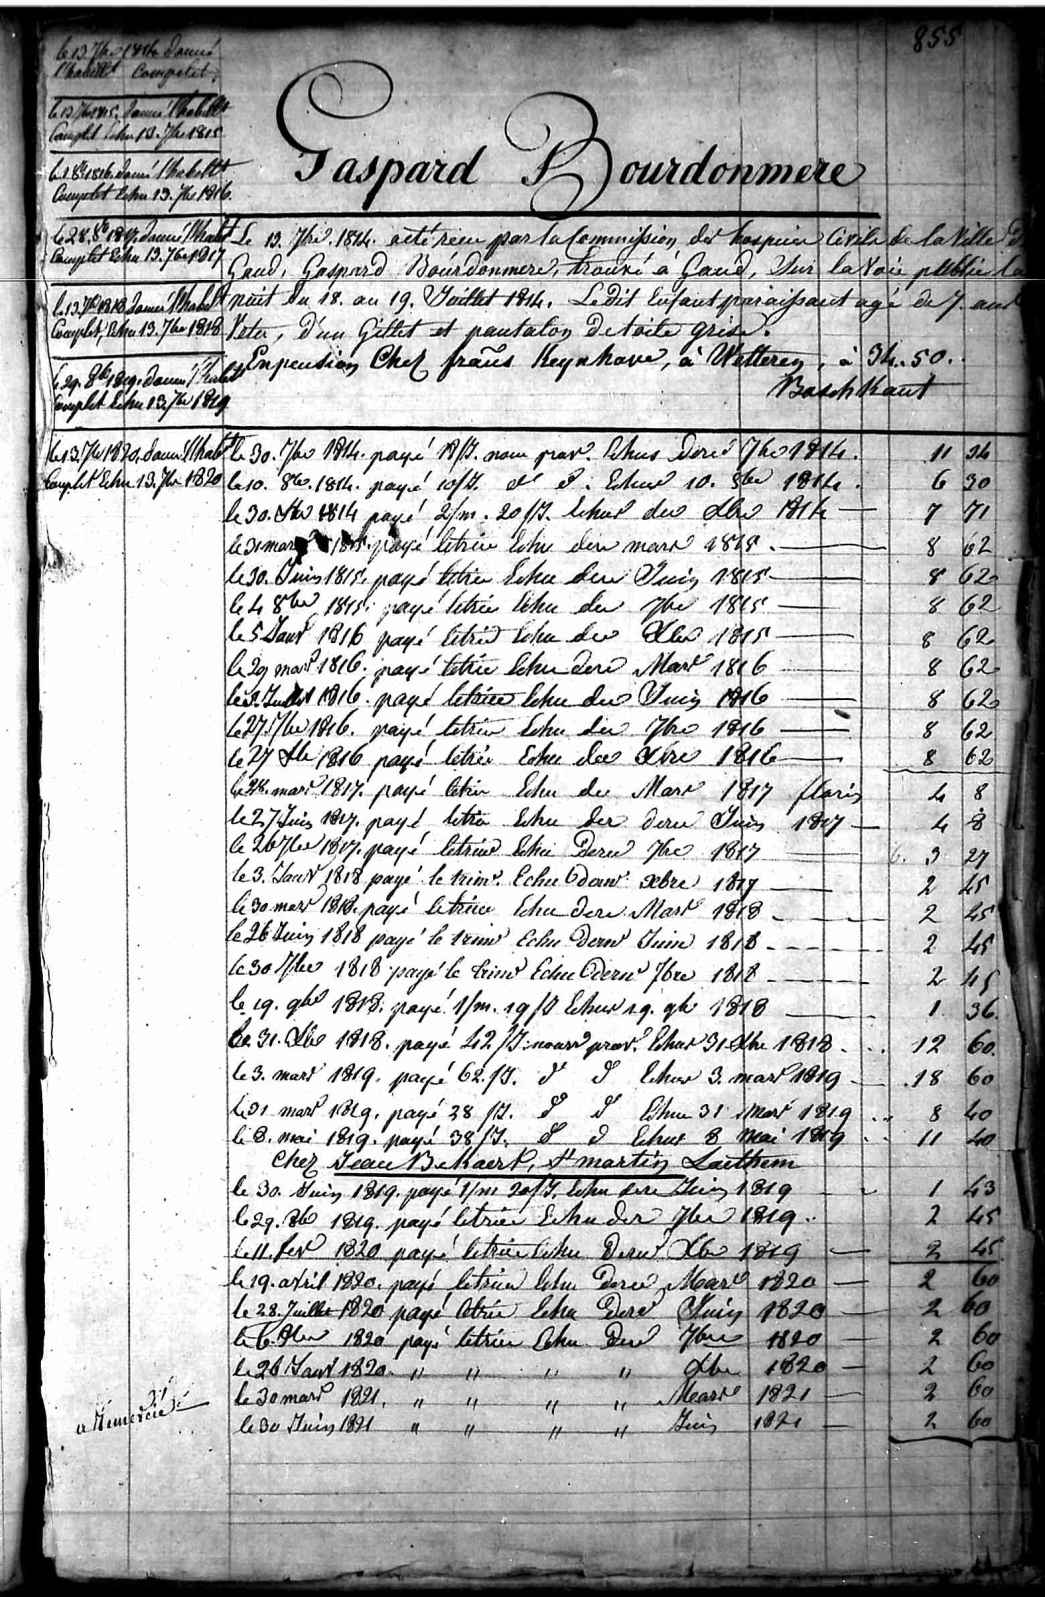 855
le 13 7bre 1814 donné
l'habillt Complet.
le 13 7bre 1815. donné l'habillt
Complet Echu 13. 7bre 1815
le 1 8b 1816 donné l'habillt
Complet Echu 13. 7bre 1816.
le 28. 8b 1817. donné l'habillt
Complet Echu 13. 7bre 1817
le 13. 7b 1818 donné l'habillt
Complet, Echu 13. 7bre 1818
le 29. 8b 1819. donné l'habillt
Complet Echu 13. 7bre 1819
le 13. 7b 1820. donné l'habillt
Complet Echu 13. 7bre 1820
Gaspard Bourdonmere
Le 13. 7bre. 1814. a été recu par la Commission des hospices Civils de la Ville de
Gand, Gaspard Bourdonmere, trouvé à Gand, Sur la Voie publice la
nuit du 18. au 19. Juillet 1814. Le dit Enfant paraissant agé de 7. ans
Vetu, d'un Gillet et pantalon de toile grise.
En pension Chez frans Keynhove, à Wetteren, à 34.50.
Boschkant
le 30. 7bre 1814. payé 18/J. nour prov. Echus dere 7bre 1814. 11 34
le 10. 8b. 1814. payé 10/J. d d. Echus 10. 8bre 1814. 6 30
le 30. Xbr 1814 payé 2/m. 20/J. Echus der Xbre 1814 7 71
le 31 mars 1815. payé letrim Echu dere mars 1815. 8 62
le 30. Juin 1815. payé letrim Echu dere Juin 1815 8 62
le 4 8bre 1815. payé letrim Echu der 7bre 1815 8 62
le 5 Janv 1816 payé letrim Echu der Xbre 1815 8 62
le 29 mars 1816. payé letrim Echu dere Mars 1816 8 62
le 2. Juillet 1816. payé letrim Echu der Juin 1816 8 62
le 27 7bre 1816. payé letrim Echu der 7bre 1816 8 62
le 27 Xbr 1816 payé letrim Echu der Xbre 1816 8 62
le 28. mars 1817. payé letrim Echu der Mars 1817 florin 4 8
le 27 Juin 1817. payé letrim Echu der dere Juin 1817 4 8
le 26 7bre 1817. payé letrim Echu Dere 7bre 1817 3 27
le 3. Janv 1818 payé le trim. Echu Dern Xbre 1817 2 45
le 30 mars 1818. payé letrim Echu dere Mars 1818 2 45
le 26 Juin 1818 payé le trim Echu Dern Juin 1818 2 45
le 30 7bre 1818 payé le trim Echu Dern 7bre 1818 2 45
le 19. 9b 1818. payé 1/m. 19/J Echus 19. 9b 1818 1 36.
le 31. Xbre 1818. payé 42/J. nour prov. Echus 31 Xbre 1818 12 60.
le 3. mars 1819. payé 62./J. d d Echus 3. mars 1819 18 60
le 31 mars 1819. payé 28/J. d d Echus 31 mars 1819 8 40
le 8. mai 1819. payé 38/J. d d Echus 8 Mai 1819 11 40
Chez Jean Bekaert, St martin Laethem
le 30. Juin 1819. payé 1/m 20/J. Echu dere Juin 1819 1 43
le 29. 8b 1819. payé letrim Echu der 7bre 1819. 2 45
le 11. fev 1820 payé letrim Echu Dern Xbr 1819 2 45
le 19. avril 1820. payé letrim Echu Dere Mars 1820 2 60
le 28. Juillet 1820 payé letrim Echu Dere Juin 1820 2 60
le 6. 8bre 1820 payé letrim Echu Der 7bre 1820 2 60
le 26 Janv 1820. " " " " Xbre 1820 2 60
le 30 mars 1821. " " " " Mars 1821 2 60
le 30 Juin 1821 " " " " Juin 1821 2 60